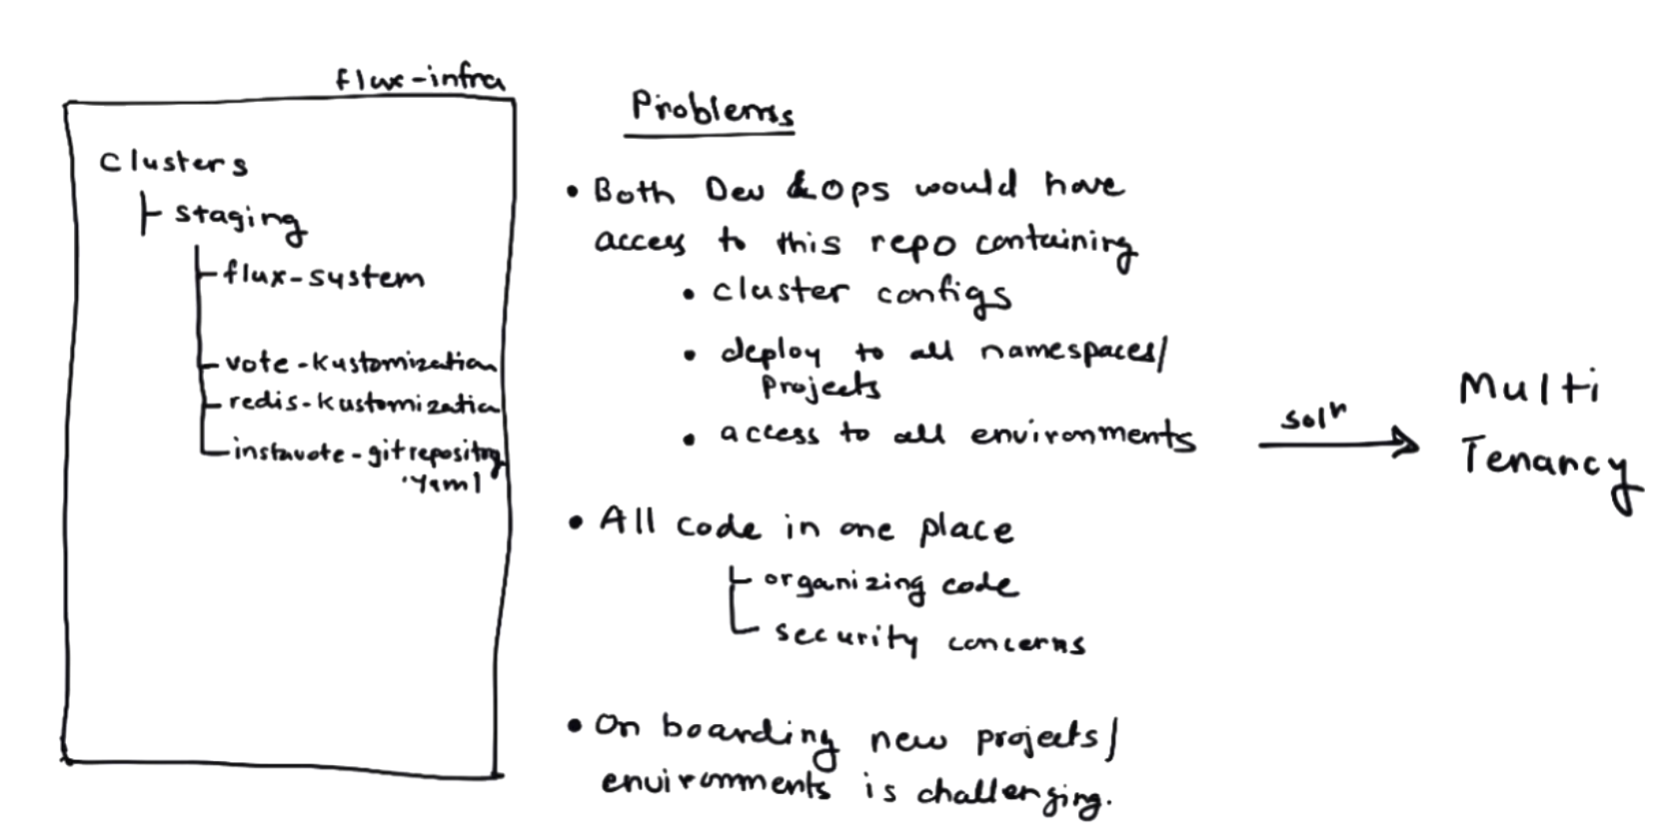 flux-infra
clusters
staging
flux-system
vote-kustomization
redis-kustomization
instavote-gitrepository
.yaml
Problems
• Both Dev & Ops would have
access to this repo containing
• cluster configs
• deploy to all namespaces/
projects
• access to all environments
• All code in one place
organizing code
security concerns
• On boarding new projects/
environments is challenging.
solⁿ
Multi
Tenancy